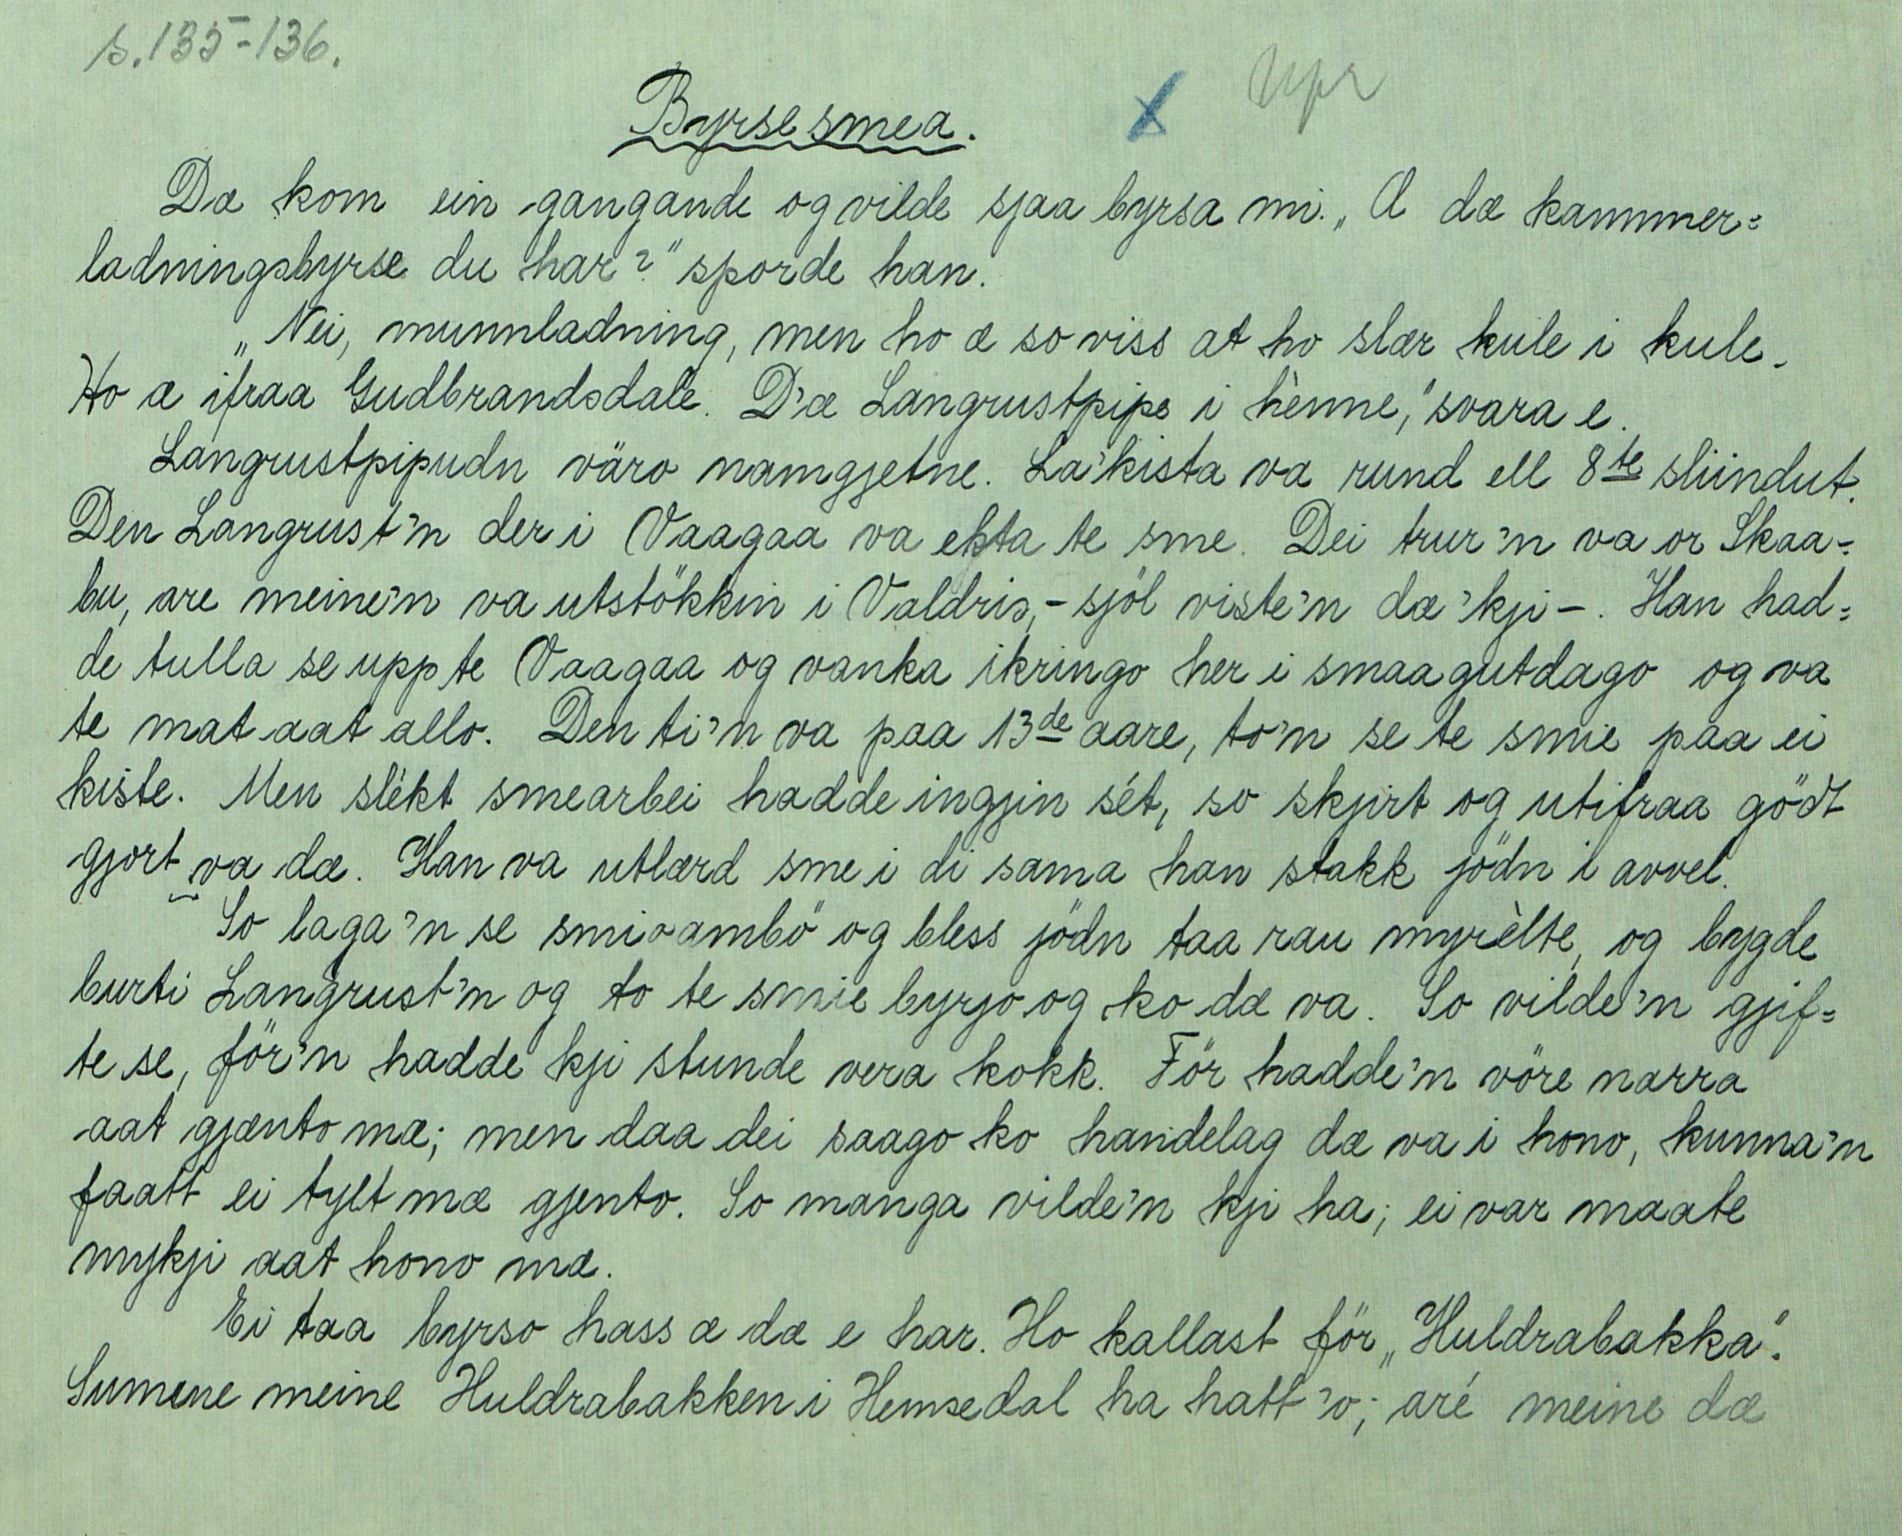 s. 135-136.
Upr
Byrsesmea.
Dæ kom ein gangande og vilde sjaa byrsa mi. „Æ dæ kammer=
ladningsbyrse du har?" sporde han.
„Nei, munnladning, men ho æ so viss at ho slær kule i kule.
Ho æ ifraa Gudbrandsdale. D'æ Langrustpipe i hènne," svara e.
Langrustpipudn väro namgjetne. La'kista va rund ell 8te sliindut.
Den Langrust'n der i Vaagaa va ekta te sme. Dei trur'n va or Skaa=
bu, are meine'n va utstökkin i Valdris, - sjöl viste'n dæ 'kji -. Han had=
de tulla se upp te Vaagaa og vanka ikringo her i smaagutdago og va
te mat aat allo. Den ti'n va paa 13de aare, to'n se te smie paa ei
kiste. Men slékt smearbei hadde ingjin sét, so skjirt og utifraa gödt
gjort va dæ. Han va utlærd sme i di sama han stakk jödn i avvel.
So laga'n se smioambö og bless jödn taa rau myrèlte, og bygde
burti Langrust'n og to te smie byrjo og ko dæ va. So vilde'n gjif=
te se, för'n hadde kji stunde vera kokk. För hadde'n vöre narra
aat gjænto mæ; men daa dei saago ko handelag dæ va i hono, kunna'n
faatt ei tylt mæ gjento. So manga vilde'n kji ha; ei var maate
mykji aat hono mæ.
Ei taa byrso hass æ dæ e har. Ho kallast för „Huldrabakka".
Sumene meine Huldrabakken i Hemsedal ha hatt 'o; aré meine dæ